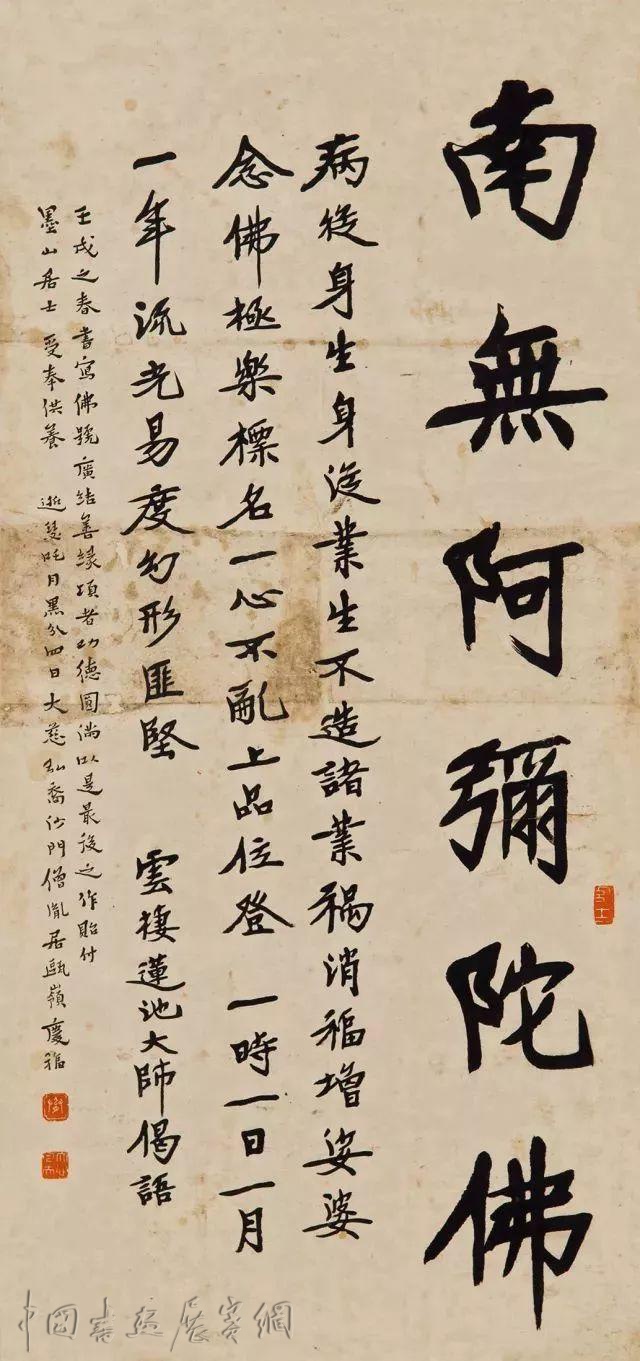 南無阿彌陀佛
病從身生身從業生不造諸業禍消福增娑婆
念佛極樂標名一心不亂上品位登 一時一日一月
一年流光易度幻形匪堅 雲棲蓮池大師偈語
壬戌之春書寫佛號廣結善緣項者功德圓滿以是最後之作貽付
墨山居士 受奉供養 逝瑟吒月黑分四日大慈弘裔沙門僧胤居甌嶺慶福
中國書畫展賽網